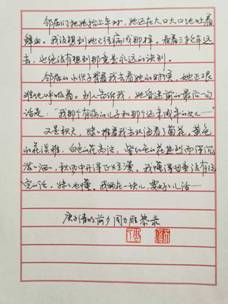 邻居们把她抬上车时，她还在大口大口地吐着
鲜血。我没想到她已经病成那样。看着三轮车远
去，也绝没有想到那竟是永远的诀别。
邻居的小伙子背着我去看她的时候，她正艰
难地呼吸着。别人告诉我，她昏迷前的最后一句
话是：“我那个有病的儿子和那个还未成年的女儿…”
又是秋天，妹妹推着我去北海看了菊花，黄色
的花淡雅，白色的花高洁，紫红色的花热烈而深沉，
泼泼洒洒，秋风中正开得烂漫。我懂得母亲没有说
完的话，妹妹也懂。我俩在一块儿，要好好儿活…
庚子清明前夕 恭录